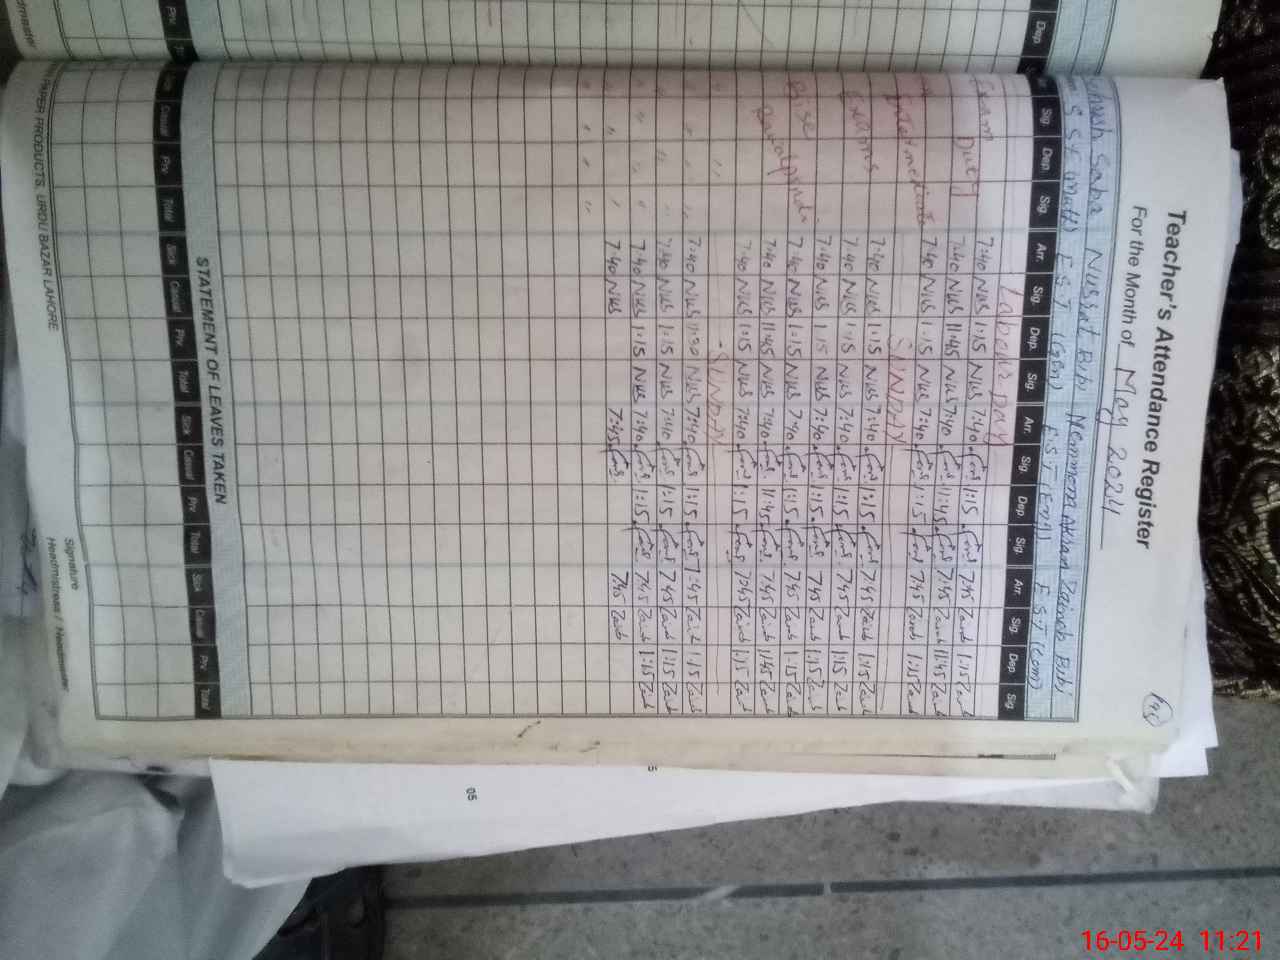 Teacher's Attendance Register
For the Month of May 2024
Saba Nusrat Bibi Memmona Akram Zainab Bibi
S.S.E (Math) E.S.T (Gen) E.S.T (Eng) E.S.T (Com)
Sig. Dep. Sig. Arr. Sig. Dep. Sig. Arr. Sig. Dep. Sig. Arr. Sig. Dep. Sig.
Labour Day
Exam Duty 7:40 Nus 1:15 Nus 7:40 1:15 7:45 Zainb 1:15 Zainb
7:40 Nus 11:45 Nus 7:40 11:45 7:45 Zainb 11:45 Zainb
Intermediate 7:40 Nus 1:15 Nus 7:40 1:15 7:45 Zainb 1:15 Zainb
SUNDAY
Exams 7:40 Nus 1:15 Nus 7:40 1:15 7:45 Zainb 1:15 Zainb
7:40 Nus 1:15 Nus 7:40 1:15 7:45 Zainb 1:15 Zainb
7:40 Nus 1:15 Nus 7:40 1:15 7:45 Zainb 1:15 Zainb
Bise 7:40 Nus 1:15 Nus 7:40 1:15 7:45 Zainb 1:15 Zainb
Rawalpindi 7:40 Nus 11:45 Nus 7:40 11:45 7:45 Zainb 11:45 Zainb
7:40 Nus 1:15 Nus 7:40 1:15 7:45 Zainb 1:15 Zainb
SUNDAY
7:40 Nus 11:30 Nus 7:40 1:15 7:45 Zainb 1:15 Zainb
7:40 Nus 1:15 Nus 7:40 1:15 7:45 Zainb 1:15 Zainb
7:40 Nus 1:15 Nus 7:40 1:15 7:45 Zainb 1:15 Zainb
7:40 Nus 7:45 7:45 Zainb
STATEMENT OF LEAVES TAKEN
Casual Prv. Total Sick Casual Prv. Total Sick Casual Prv. Total Sick Casual Prv. Total
Signature
Headmistress / Headmaster
PAPER PRODUCTS, URDU BAZAR LAHORE
Dep.
Prv.
05
16-05-24 11:21